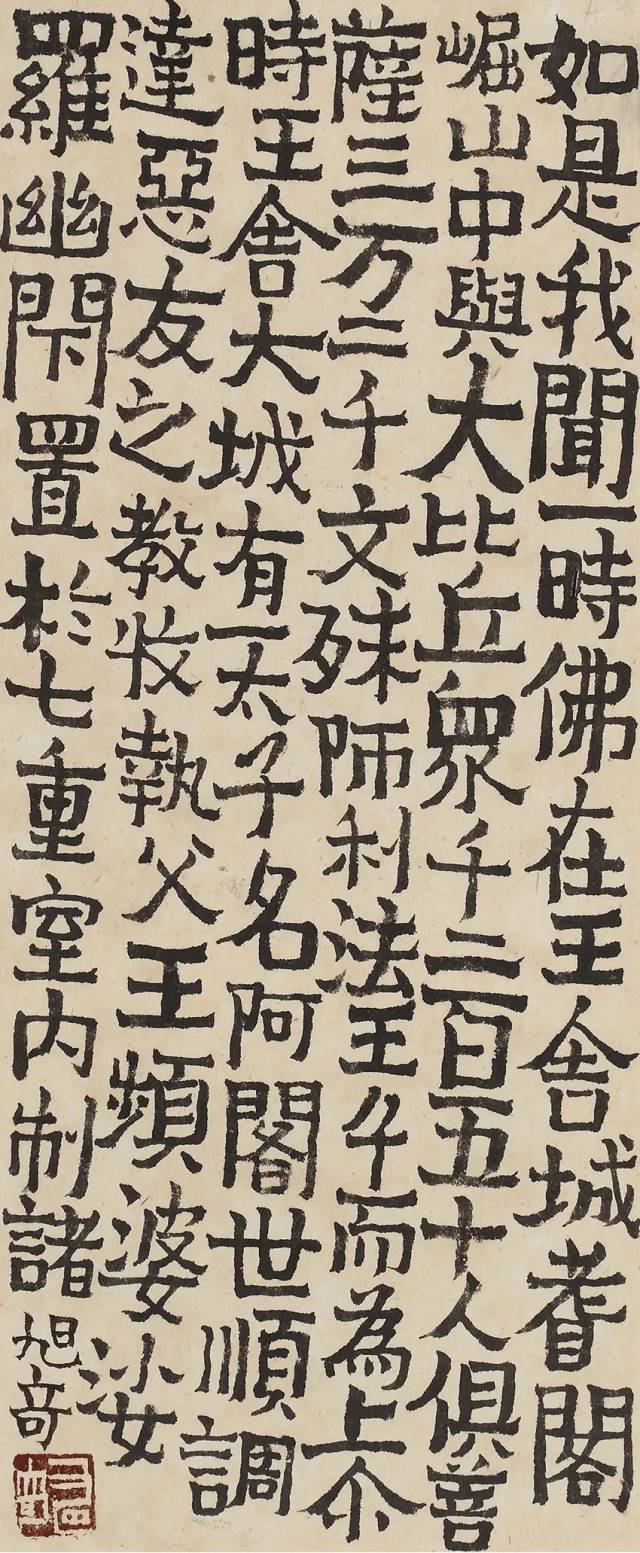 如是我聞一時佛在王舍城耆閣
崛山中與大比丘眾千二百五十人俱菩
薩三万二千文殊師利法王子而為上尒
時王舍大城有一太子名阿閣世順調
達惡友之教收執父王頻婆娑
羅幽閇置於七重室内制諸
旭奇